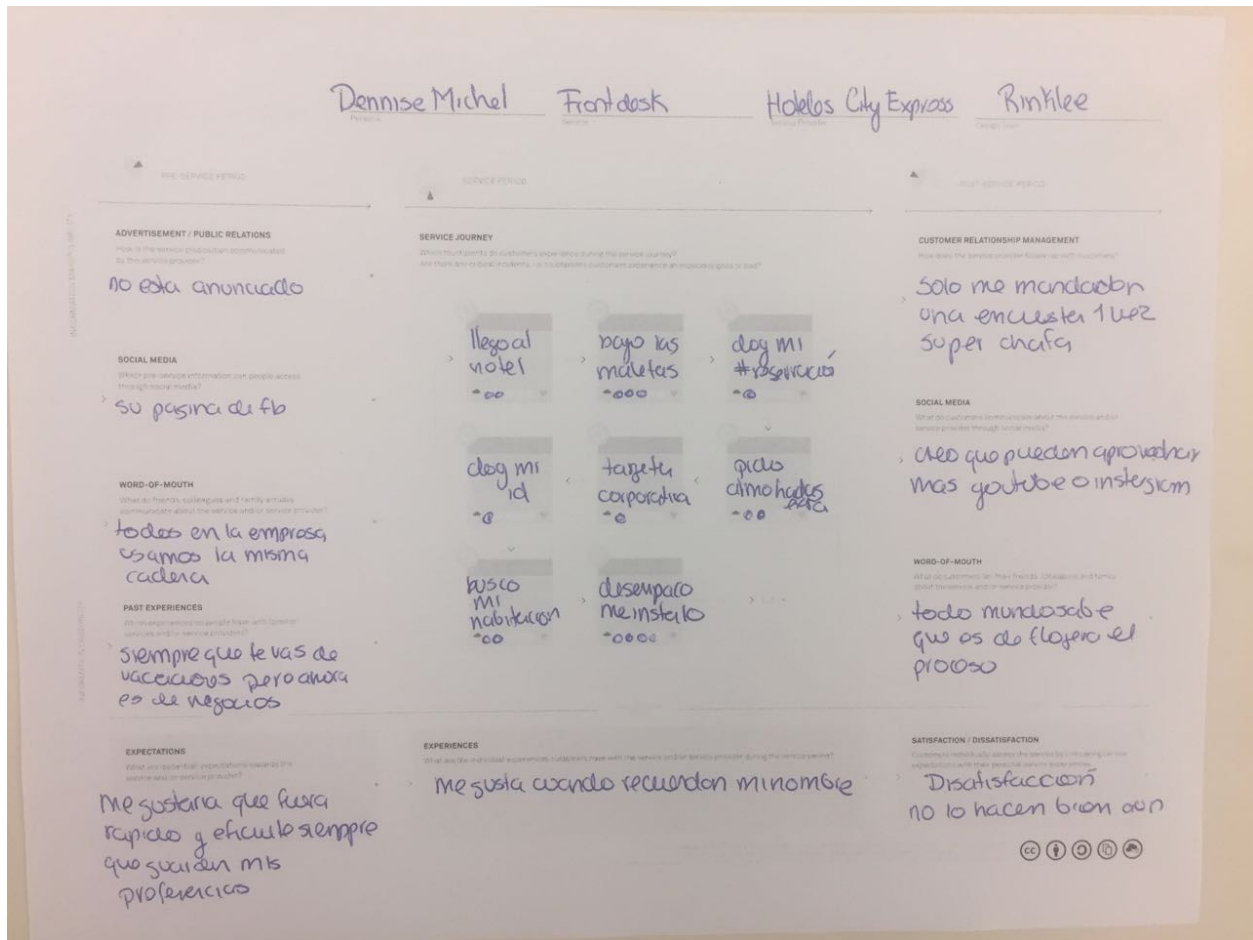 Dennise Michel Frontdesk Hoteles City Express Rinklee
Persona
PRE-SERVICE PERIOD
SERVICE PERIOD
POST-SERVICE PERIOD
ADVERTISEMENT / PUBLIC RELATIONS
How is the service proposition communicated
by the service provider?
no esta anunciado
SOCIAL MEDIA
Which pre-service information can people access
through social media?
su pagina de fb
WORD-OF-MOUTH
What do friends, colleagues and family actually
communicate about the service and/or service provider?
todos en la empresa
usamos la misma
cadena
PAST EXPERIENCES
services and/or service providers?
siempre que te vas de
vacaciones pero ahora
es de negocios
EXPECTATIONS
service and/or service provider?
me gustaria que fuera
rapido y eficiente siempre
que guarden mis
preferencias
SERVICE JOURNEY
Which touchpoints do customers experience during the service journey?
llego al
hotel
bajo las
maletas
doy mi
#reservació
doy mi
id
tarjeta
corporativa
pido
almohadas
extra
busco
mi
habitacion
desempaco
me instalo
EXPERIENCES
What are the individual experiences customers have with the service and/or service provider during the service period?
me gusta cuando recuerdan mi nombre
CUSTOMER RELATIONSHIP MANAGEMENT
How does the service provider follow-up with customers?
Solo me mandaron
una encuesta 1 vez
super chafa
SOCIAL MEDIA
What do customers communicate about the service and/or
service provider through social media?
creo que pueden aprovechar
mas youtube o instagram
WORD-OF-MOUTH
What do customers tell their friends, colleagues and family
about the service and/or service provider?
todo mundo sabe
que es de flojera el
proceso
SATISFACTION / DISSATISFACTION
expectations with their personal service experiences.
Disatisfacción
no lo hacen bien aun
cc